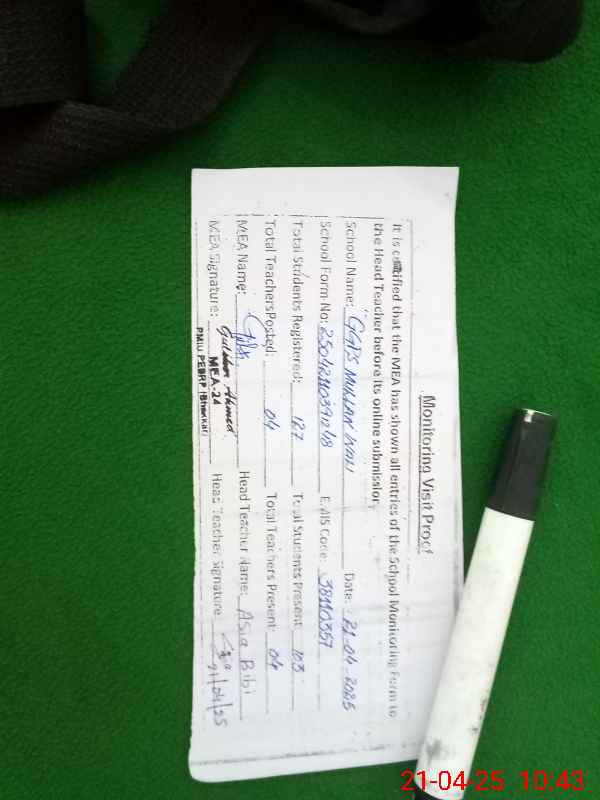 Monitoring Visit Proof
It is certified that the MEA has shown all entries of the School Monitoring Form to
the Head Teacher before its online submission
School Name: GGPS MULLAN WALI Date: 21-04-2025
School Form No: EMIS Code: 38110357
Total Students Registered: 127 Total Students Present: 103
Total Teachers Posted: 04 Total Teachers Present: 04
MEA Name: Head Teacher Name: Asia Bibi
MEA Signature: Gulshan Ahmed Head Teacher Signature Asia
MEA-24 21/04/25
PMIU PESRP (Bhakkar)
21-04-25 10:43